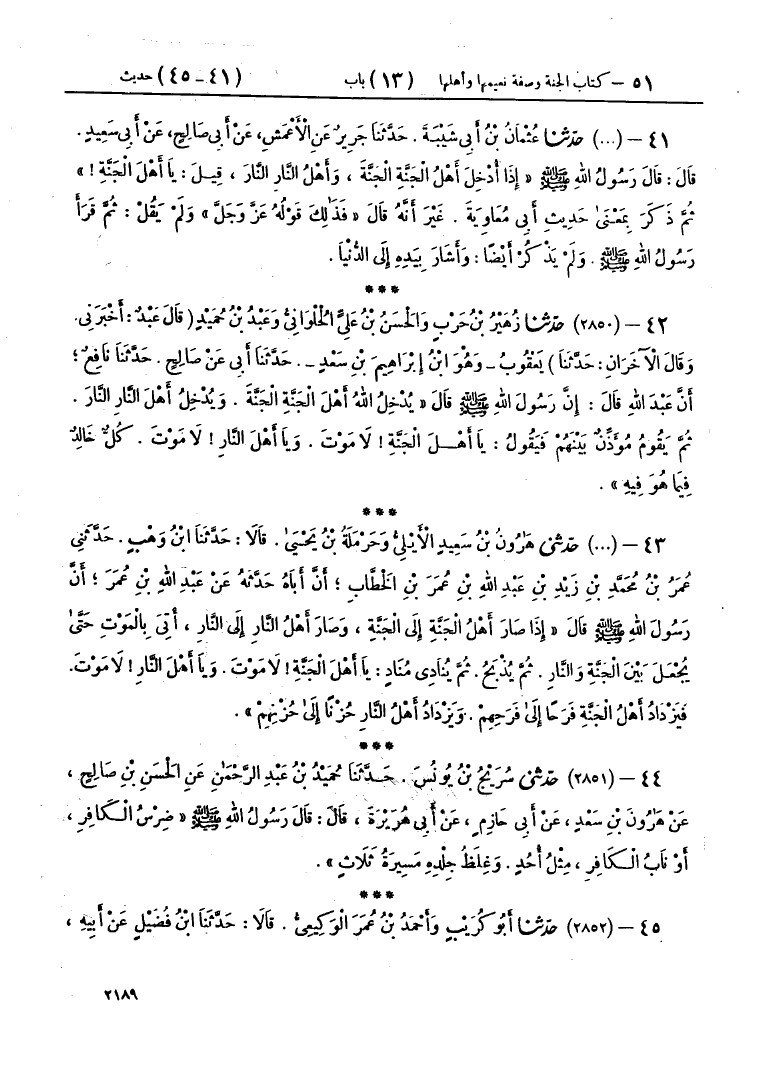 ٥١ – كتاب الجنة وصفة نعيمها وأهلها (١٣) باب (٤١ – ٤٥) حديث
٤١ – (...) حَدَّثَنَا عُثْمَانُ بْنُ أَبِي شَيْبَةَ . حَدَّثَنَا جَرِيرٌ عَنِ الْأَعْمَشِ، عَنْ أَبِي صَالِحٍ، عَنْ أَبِي سَعِيدٍ .
قَالَ: قَالَ رَسُولُ اللهِ ﷺ « إِذَا أُدْخِلَ أَهْلُ الْجَنَّةِ الْجَنَّةَ ، وَأَهْلُ النَّارِ النَّارَ ، قِيلَ : يَا أَهْلَ الْجَنَّةِ ! »
ثُمَّ ذَكَرَ بِمَعْنَىٰ حَدِيثِ أَبِي مُعَاوِيَةَ . غَيْرَ أَنَّهُ قَالَ « فَذَٰلِكَ قَوْلُهُ عَزَّ وَجَلَّ » وَلَمْ يَقُلْ : ثُمَّ قَرَأَ
رَسُولُ اللهِ ﷺ . وَلَمْ يَذْكُرْ أَيْضًا : وَأَشَارَ بِيَدِهِ إِلَى الدُّنْيَا .
***
٤٢ – (٢٨٥٠) حَدَّثَنَا زُهَيْرُ بْنُ حَرْبٍ وَالْحَسَنُ بْنُ عَلِيٍّ الْحُلْوَانِيُّ وَعَبْدُ بْنُ حُمَيْدٍ ( قَالَ عَبْدٌ : أَخْبَرَنِي.
وَقَالَ الْآخَرَانِ : حَدَّثَنَا ) يَعْقُوبُ – وَهُوَ ابْنُ إِبْرَاهِيمَ بْنِ سَعْدٍ – . حَدَّثَنَا أَبِي عَنْ صَالِحٍ . حَدَّثَنَا نَافِعٌ ؛
أَنَّ عَبْدَ اللهِ قَالَ : إِنَّ رَسُولَ اللهِ ﷺ قَالَ « يُدْخِلُ اللهُ أَهْلَ الْجَنَّةِ الْجَنَّةَ . وَيُدْخِلُ أَهْلَ النَّارِ النَّارَ .
ثُمَّ يَقُومُ مُؤَذِّنٌ بَيْنَهُمْ فَيَقُولُ : يَا أَهْلَ الْجَنَّةِ ! لَا مَوْتَ . وَيَا أَهْلَ النَّارِ ! لَا مَوْتَ . كُلٌّ خَالِدٌ
فِيمَا هُوَ فِيهِ » .
***
٤٣ – (...) حَدَّثَنِي هَارُونُ بْنُ سَعِيدٍ الْأَيْلِيُّ وَحَرْمَلَةُ بْنُ يَحْيَىٰ . قَالَا : حَدَّثَنَا ابْنُ وَهْبٍ . حَدَّثَنِي
عُمَرُ بْنُ مُحَمَّدِ بْنِ زَيْدِ بْنِ عَبْدِ اللهِ بْنِ عُمَرَ بْنِ الْخَطَّابِ ؛ أَنَّ أَبَاهُ حَدَّثَهُ عَنْ عَبْدِ اللهِ بْنِ عُمَرَ ؛ أَنَّ
رَسُولَ اللهِ ﷺ قَالَ « إِذَا صَارَ أَهْلُ الْجَنَّةِ إِلَى الْجَنَّةِ ، وَصَارَ أَهْلُ النَّارِ إِلَى النَّارِ ، أُتِيَ بِالْمَوْتِ حَتَّىٰ
يُجْعَلَ بَيْنَ الْجَنَّةِ وَالنَّارِ . ثُمَّ يُذْبَحُ . ثُمَّ يُنَادِي مُنَادٍ : يَا أَهْلَ الْجَنَّةِ ! لَا مَوْتَ . وَيَا أَهْلَ النَّارِ ! لَا مَوْتَ.
فَيَزْدَادُ أَهْلُ الْجَنَّةِ فَرَحًا إِلَىٰ فَرَحِهِمْ . وَيَزْدَادُ أَهْلُ النَّارِ حُزْنًا إِلَىٰ حُزْنِهِمْ » .
***
٤٤ – (٢٨٥١) حَدَّثَنِي سُرَيْجُ بْنُ يُونُسَ . حَدَّثَنَا حُمَيْدُ بْنُ عَبْدِ الرَّحْمَٰنِ عَنِ الْحَسَنِ بْنِ صَالِحٍ ،
عَنْ هَارُونَ بْنِ سَعْدٍ ، عَنْ أَبِي حَازِمٍ ، عَنْ أَبِي هُرَيْرَةَ ، قَالَ : قَالَ رَسُولُ اللهِ ﷺ « ضِرْسُ الْكَافِرِ ،
أَوْ نَابُ الْكَافِرِ ، مِثْلُ أُحُدٍ . وَغِلَظُ جِلْدِهِ مَسِيرَةُ ثَلَاثٍ » .
***
٤٥ – (٢٨٥٢) حَدَّثَنَا أَبُو كُرَيْبٍ وَأَحْمَدُ بْنُ عُمَرَ الْوَكِيعِيُّ . قَالَا : حَدَّثَنَا ابْنُ فُضَيْلٍ عَنْ أَبِيهِ ،
٢١٨٩